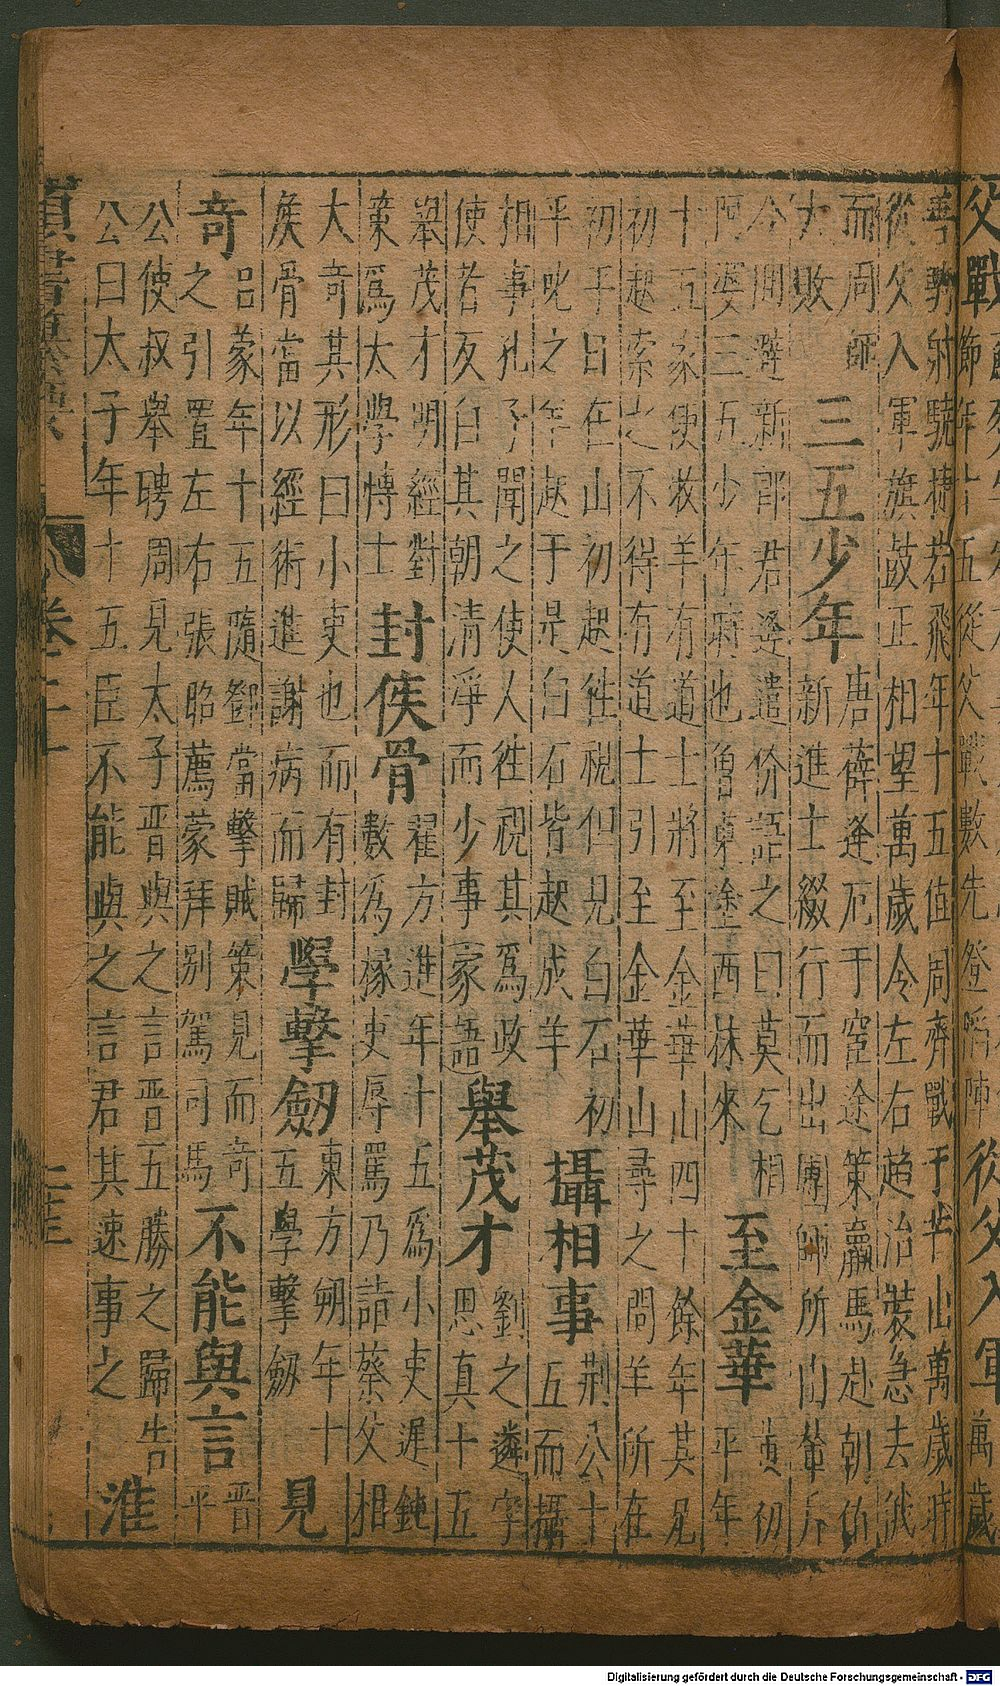 父戰
節年十五從父戰數先登陷陣
從父入軍
萬歲
善騎射驍捷若飛年十五值周齊戰于芒山萬歲時
從父入軍旗鼓正相望萬歲令左右趨治裝急去俄
而周師
大敗
三五少年
唐薛逢厄于窮途策羸馬赴朝值
新進士綴行而出團師所由輩斥
今聞避新郎君逢遣价語之曰莫乞相
阿婆三五少年時也曾東塗西抹來
至金華
黃初
平年
十五家使牧羊有道士將至金華山四十餘年其兄
初起索之不得有道士引至金華山尋之問羊所在
初平曰在山初起往視但見白石初
平叱之羊起于是白石皆起成羊
攝相事
荊公十
五而攝
相事孔子聞之使人往視其爲政
使者反曰其朝清淨而少事家語
舉茂才
劉之遴字
思真十五
舉茂才明經對
策爲太學博士
封侯骨
翟方進年十五爲小吏遲鈍
數爲掾吏辱罵乃請蔡父相
大奇其形曰小吏也而有封
侯骨當以經術進謝病而歸
學擊劔
東方朔年十
五學擊劔
見
奇
呂蒙年十五隨鄧當擊賊策見而奇
之引置左右張昭薦蒙拜別駕司馬
不能與言
晉平
公使叔舉聘周見太子晉與之言晉五勝之歸告
公曰太子年十五臣不能與之言君其速事之
淮
卷二十一
Digitalisierung gefördert durch die Deutsche Forschungsgemeinschaft - DFG